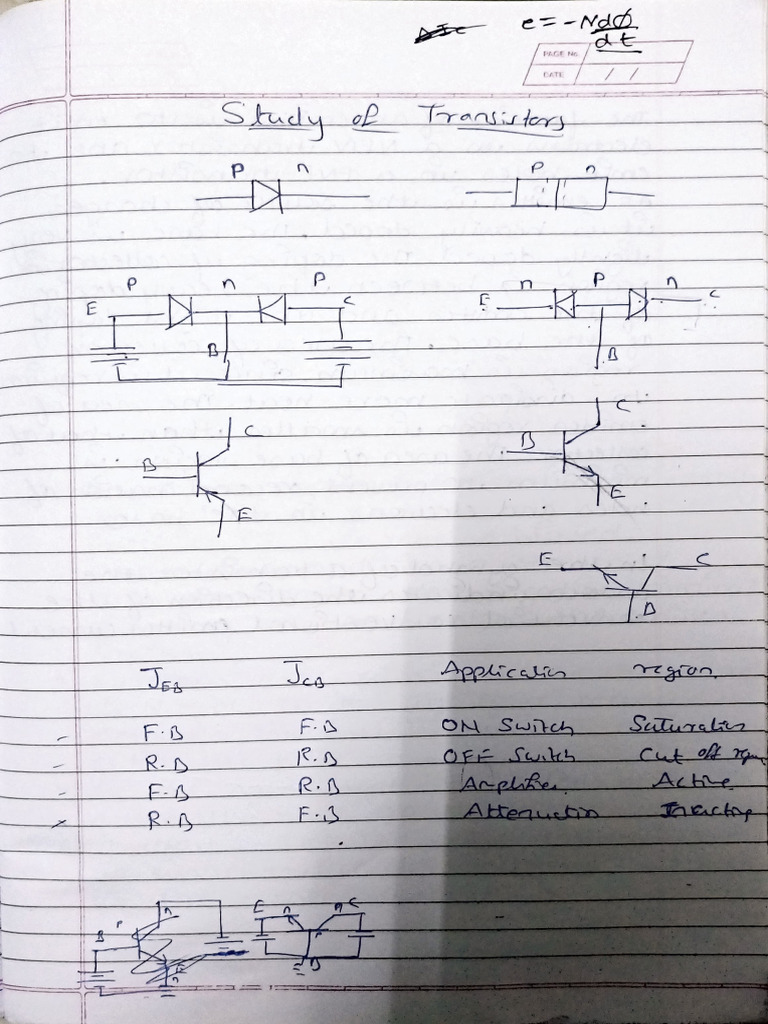 e = -Ndφ
dt
PAGE No.
DATE / /
Study of Transistors
P n P n
P n P n P n
E C E C
B B
C C
B B
E E
E C
B
J_EB J_CB Application region
F.B F.B ON Switch Saturation
R.B R.B OFF Switch Cut off
F.B R.B Amplifier Active
R.B F.B Attenuation
P n E n n C
B P
n B